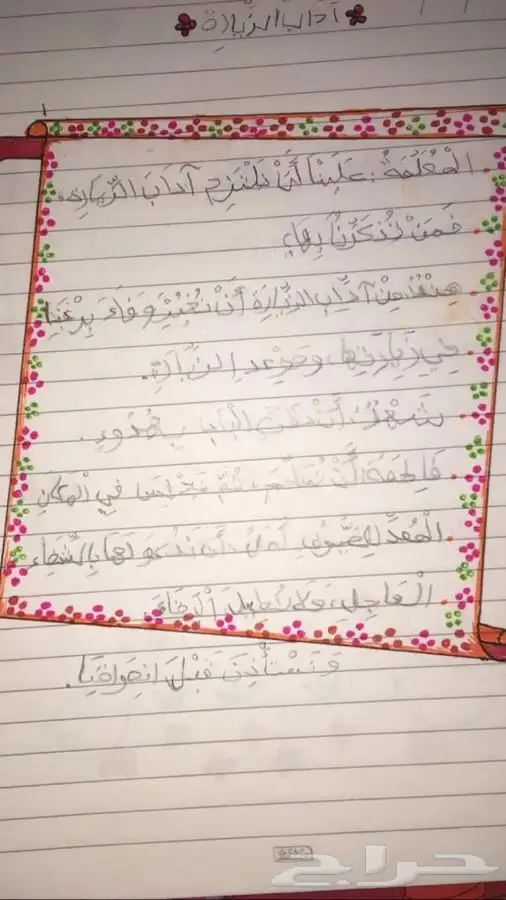 آدَابُ الزِّيَارَةِ
الْمُعَلِّمَةُ: عَلَيْنَا أَنْ نَلْتَزِمَ آدَابَ الزِّيَارَةِ،
فَمَنْ تُذَكِّرُنَا بِهَا؟
هِنْدُ: مِنْ آدَابِ الزِّيَارَةِ أَنْ نُخْبِرَ وَفَاءَ بِرَغْبَتِنَا
فِي زِيَارَتِهَا، وَمَوْعِدِ الزِّيَارَةِ.
شَهْدُ: أَنْ نَطْرُقَ الْبَابَ بِهُدُوءٍ.
فَاطِمَةُ: أَنْ نُسَلِّمَ، ثُمَّ نَجْلِسَ فِي الْمَكَانِ
الْمُعَدِّ لِلضُّيُوفِ أَنْ نَدْعُوَ لَهَا بِالشِّفَاءِ
الْعَاجِلِ، وَلَا نُطِيلَ
وَنَسْتَأْذِنَ قَبْلَ انْصِرَافِنَا.
حراج